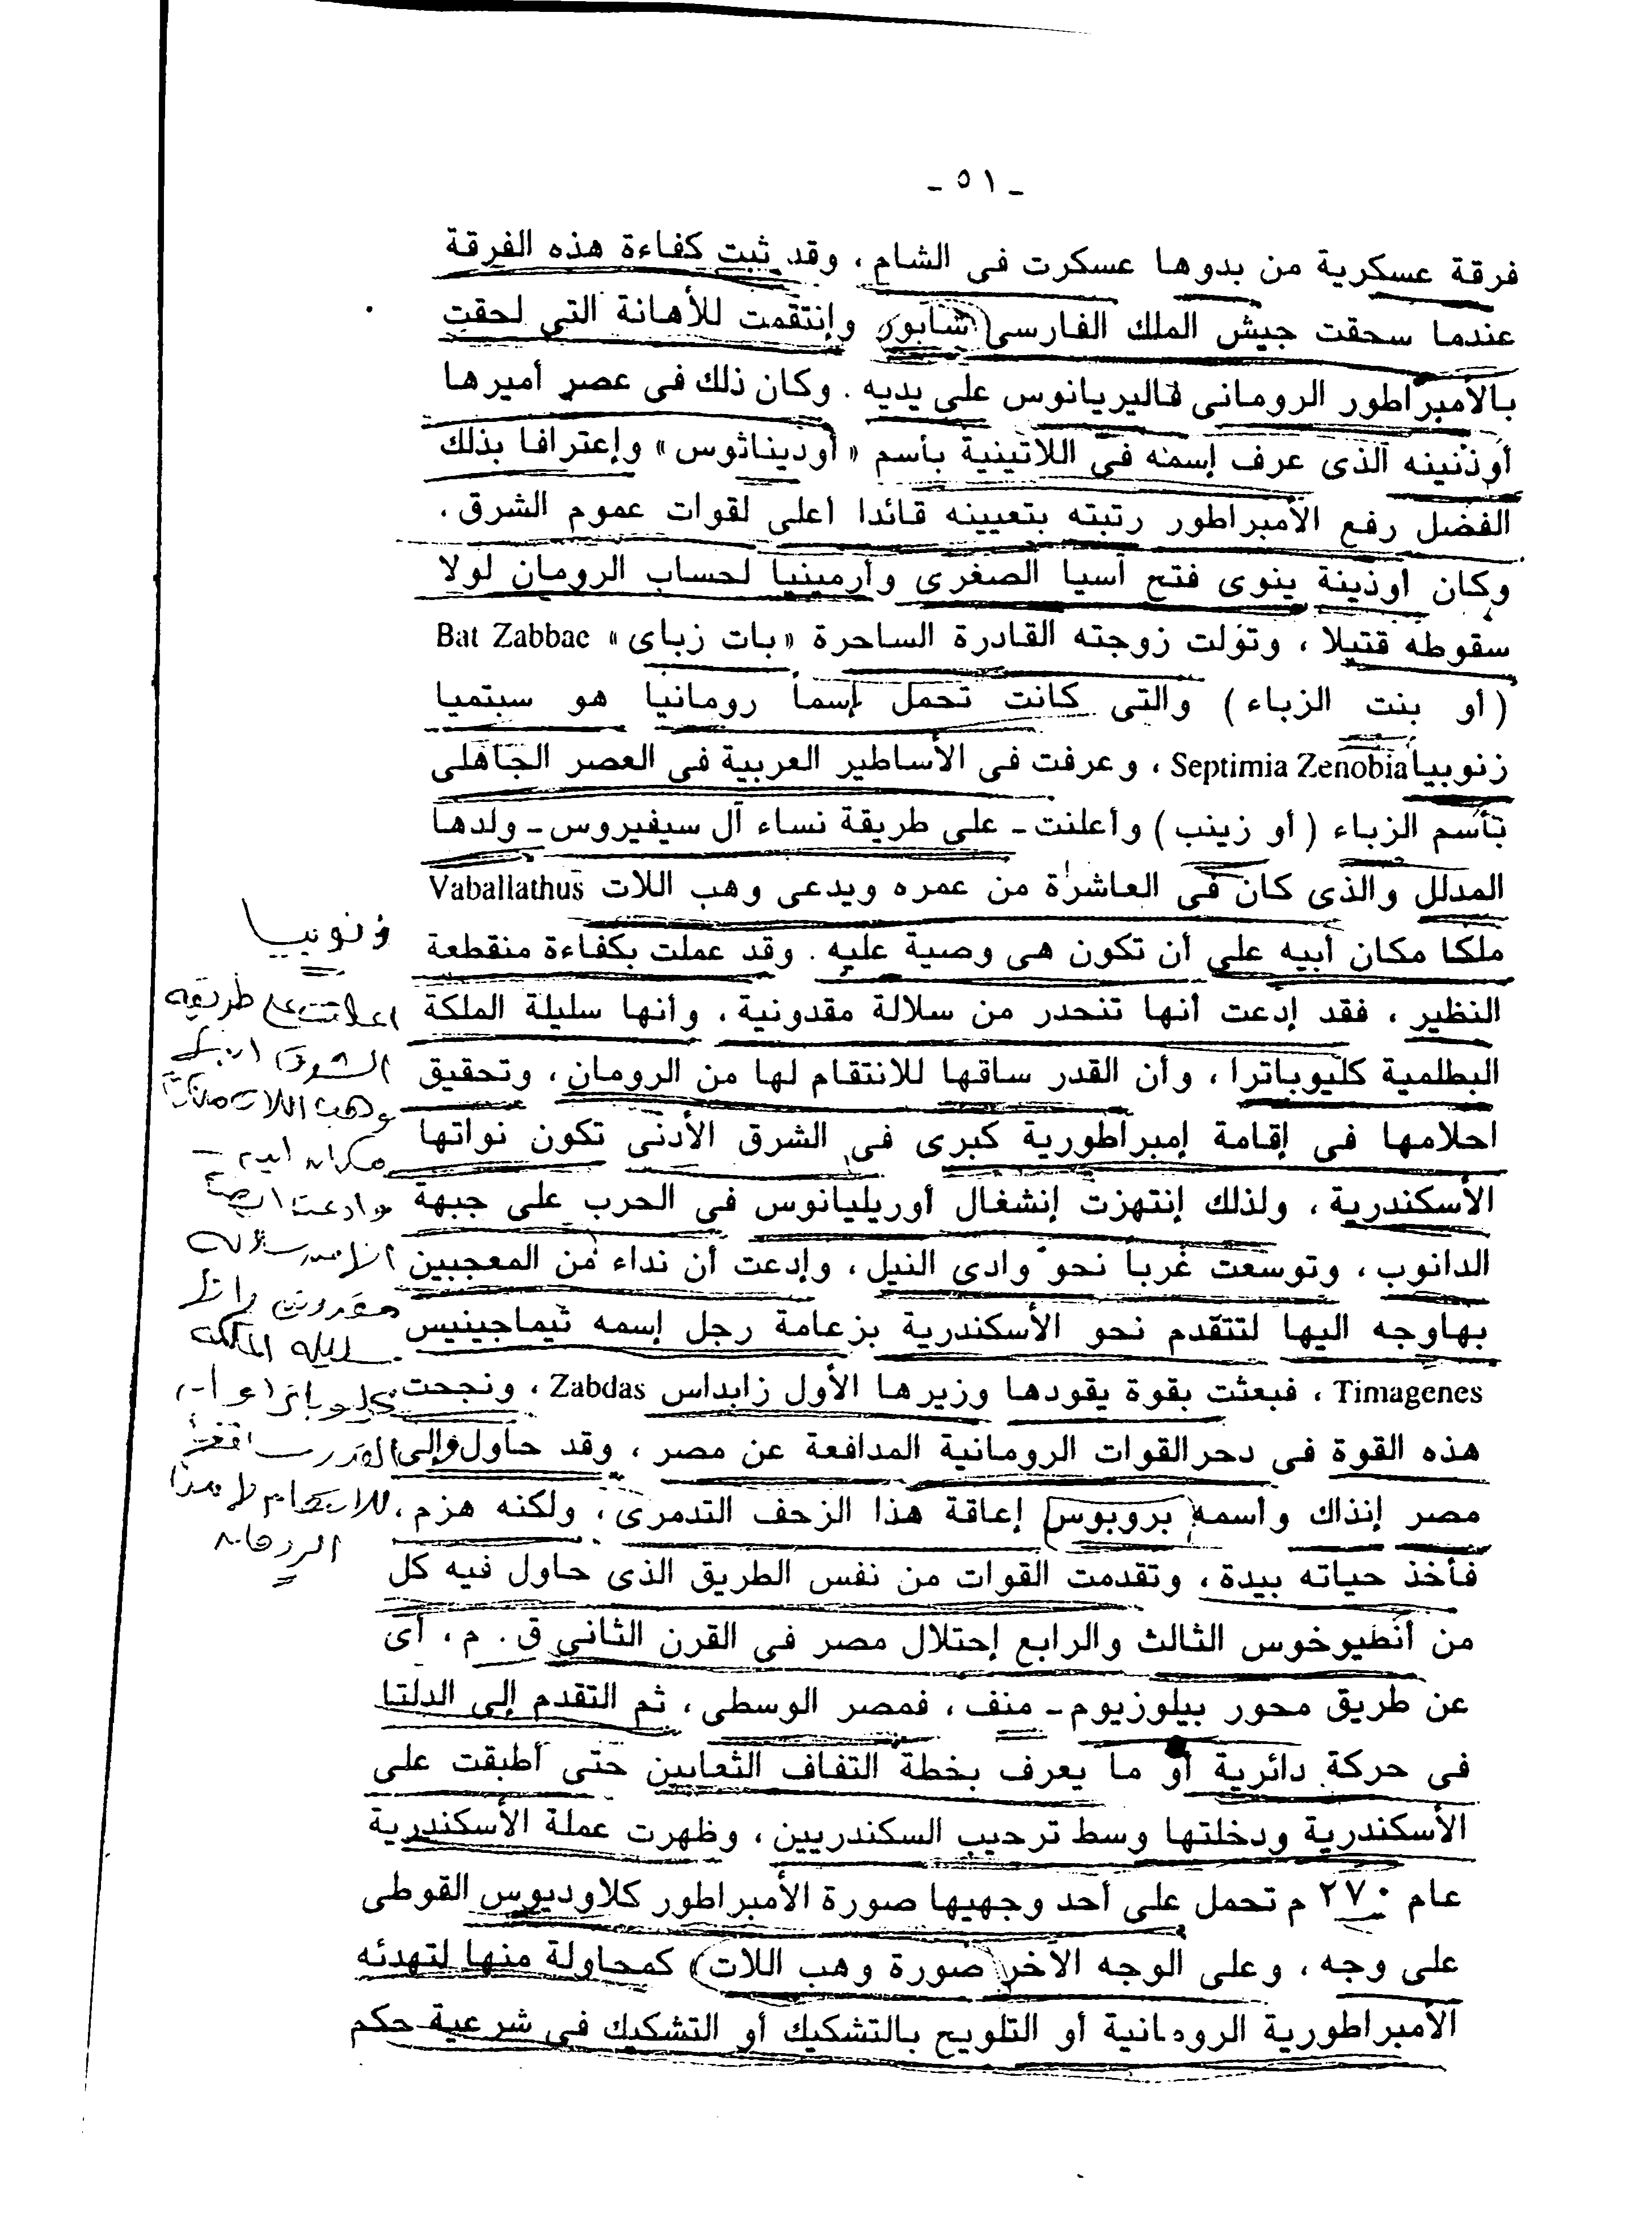 - ٥١ -
فرقة عسكرية من بدوها عسكرت فى الشام ، وقد ثبت كفاءة هذه الفرقة
عندما سحقت جيش الملك الفارسى شابور وإنتقمت للأهانة التى لحقت
بالأمبراطور الرومانى فاليريانوس على يديه . وكان ذلك فى عصر أميرها
أوذنينه الذى عرف إسمه فى اللاتينية بأسم « أوديناثوس » وإعترافا بذلك
الفضل رفع الأمبراطور رتبته بتعيينه قائدا أعلى لقوات عموم الشرق ،
وكان أوذينة ينوى فتح آسيا الصغرى وأرمينيا لحساب الرومان لولا
سقوطه قتيلا ، وتولت زوجته القادرة الساحرة « بات زباى » Bat Zabbae
( أو بنت الزباء ) والتى كانت تحمل إسماً رومانيا هو سبتميا
زنوبيا Septimia Zenobia ، وعرفت فى الأساطير العربية فى العصر الجاهلى
بأسم الزباء ( أو زينب ) وأعلنت - على طريقة نساء آل سيفيروس - ولدها
المدلل والذى كان فى العاشرة من عمره ويدعى وهب اللات Vaballathus
ملكا مكان أبيه على أن تكون هى وصية عليه . وقد عملت بكفاءة منقطعة
النظير ، فقد إدعت أنها تنحدر من سلالة مقدونية ، وأنها سليلة الملكة
البطلمية كليوباترا ، وأن القدر ساقها للانتقام لها من الرومان ، وتحقيق
احلامها فى إقامة إمبراطورية كبرى فى الشرق الأدنى تكون نواتها
الأسكندرية ، ولذلك إنتهزت إنشغال أوريليانوس فى الحرب على جبهة
الدانوب ، وتوسعت غربا نحو وادى النيل ، وإدعت أن نداء من المعجبين
بهاوجه اليها لتتقدم نحو الأسكندرية بزعامة رجل إسمه ثيماجينيس
Timagenes ، فبعثت بقوة يقودها وزيرها الأول زابداس Zabdas ، ونجحت
هذه القوة فى دحرالقوات الرومانية المدافعة عن مصر ، وقد حاول وإلى
مصر إنذاك وأسمه بروبوس إعاقة هذا الزحف التدمرى ، ولكنه هزم ،
فأخذ حياته بيدة ، وتقدمت القوات من نفس الطريق الذى حاول فيه كل
من أنطيوخوس الثالث والرابع إحتلال مصر فى القرن الثانى ق . م ، أى
عن طريق محور بيلوزيوم - منف ، فمصر الوسطى ، ثم التقدم إلى الدلتا
فى حركة دائرية أو ما يعرف بخطة التفاف الثعابين حتى أطبقت على
الأسكندرية ودخلتها وسط ترحيب السكندريين ، وظهرت عملة الأسكندرية
عام ٢٧٠ م تحمل على أحد وجهيها صورة الأمبراطور كلاوديوس القوطى
على وجه ، وعلى الوجه الآخر (صورة وهب اللات) كمحاولة منها لتهدئه
الأمبراطورية الرومانية أو التلويح بالتشكيك أو التشكيك فى شرعية حكم
زنوبيا
اعلانت على طريقه
وهب اللات
مكان ابيه
وادعت ايضا
انها من سلاله
مقدونيه وانها
سليله الملكه
كليوباترا وان
القدر
الرومان